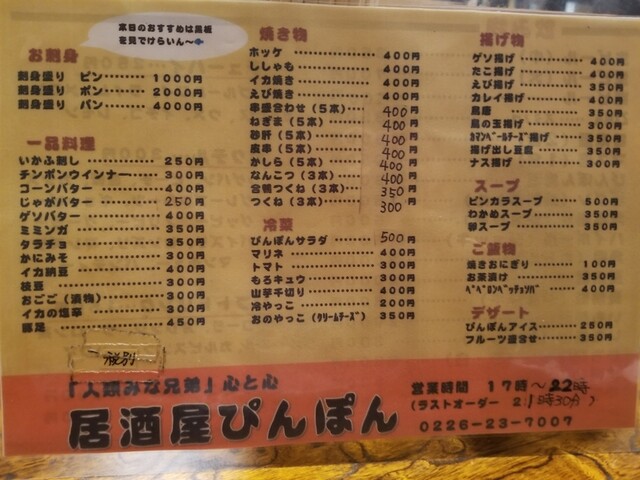 本日のおすすめは黒板
を見てけらいん～
お刺身
刺身盛り ピン ・・・・・ 1000円
刺身盛り ポン ・・・・・ 2000円
刺身盛り パン ・・・・・ 4000円
一品料理
いかふ刺し ・・・・・ 250円
チンポンウインナー ・・・・・ 300円
コーンバター ・・・・・ 400円
じゃがバター ・・・・・ 250円
ゲソバター ・・・・・ 400円
ミミンガ ・・・・・ 350円
タラチョ ・・・・・ 350円
かにみそ ・・・・・ 300円
イカ納豆 ・・・・・ 400円
枝豆 ・・・・・ 300円
おごご（漬物） ・・・・・ 300円
イカの塩辛 ・・・・・ 300円
豚足 ・・・・・ 450円
税別
焼き物
ホッケ ・・・・・ 400円
ししゃも ・・・・・ 400円
イカ焼き ・・・・・ 400円
えび焼き ・・・・・ 400円
串盛合わせ（5本） ・・・・・ 400円
ねぎま（5本） ・・・・・ 400円
砂肝（5本） ・・・・・ 400円
皮串（5本） ・・・・・ 400円
かしら（5本） ・・・・・ 400円
なんこつ（3本） ・・・・・ 400円
合鴨つくね（3本） ・・・・・ 350円
つくね（3本） ・・・・・ 300円
冷菜
ぴんぽんサラダ ・・・・・ 500円
マリネ ・・・・・ 400円
トマト ・・・・・ 300円
もろキュウ ・・・・・ 300円
山芋千切り ・・・・・ 400円
冷やっこ ・・・・・ 200円
おのやっこ（クリームチーズ） 350円
揚げ物
ゲソ揚げ ・・・・・ 400円
たこ揚げ ・・・・・ 400円
えび揚げ ・・・・・ 350円
カレイ揚げ ・・・・・ 400円
鳥唐 ・・・・・ 350円
烏の玉揚げ ・・・・・ 300円
カマンベールチーズ揚げ ・・・・・ 350円
揚げ出し豆腐 ・・・・・ 350円
ナス揚げ ・・・・・ 300円
スープ
ピンカラスープ ・・・・・ 500円
わかめスープ ・・・・・ 350円
卵スープ ・・・・・ 350円
ご飯物
焼きおにぎり ・・・・・ 100円
お茶漬け ・・・・・ 350円
ペペロンペッチョンパー ・・・・・ 400円
デザート
ぴんぽんアイス ・・・・・ 250円
フルーツ盛合せ ・・・・・ 350円
「人類みな兄弟」心と心
居酒屋ぴんぽん
営業時間 17時～22時
（ラストオーダー 21時30分）
0226-23-7007